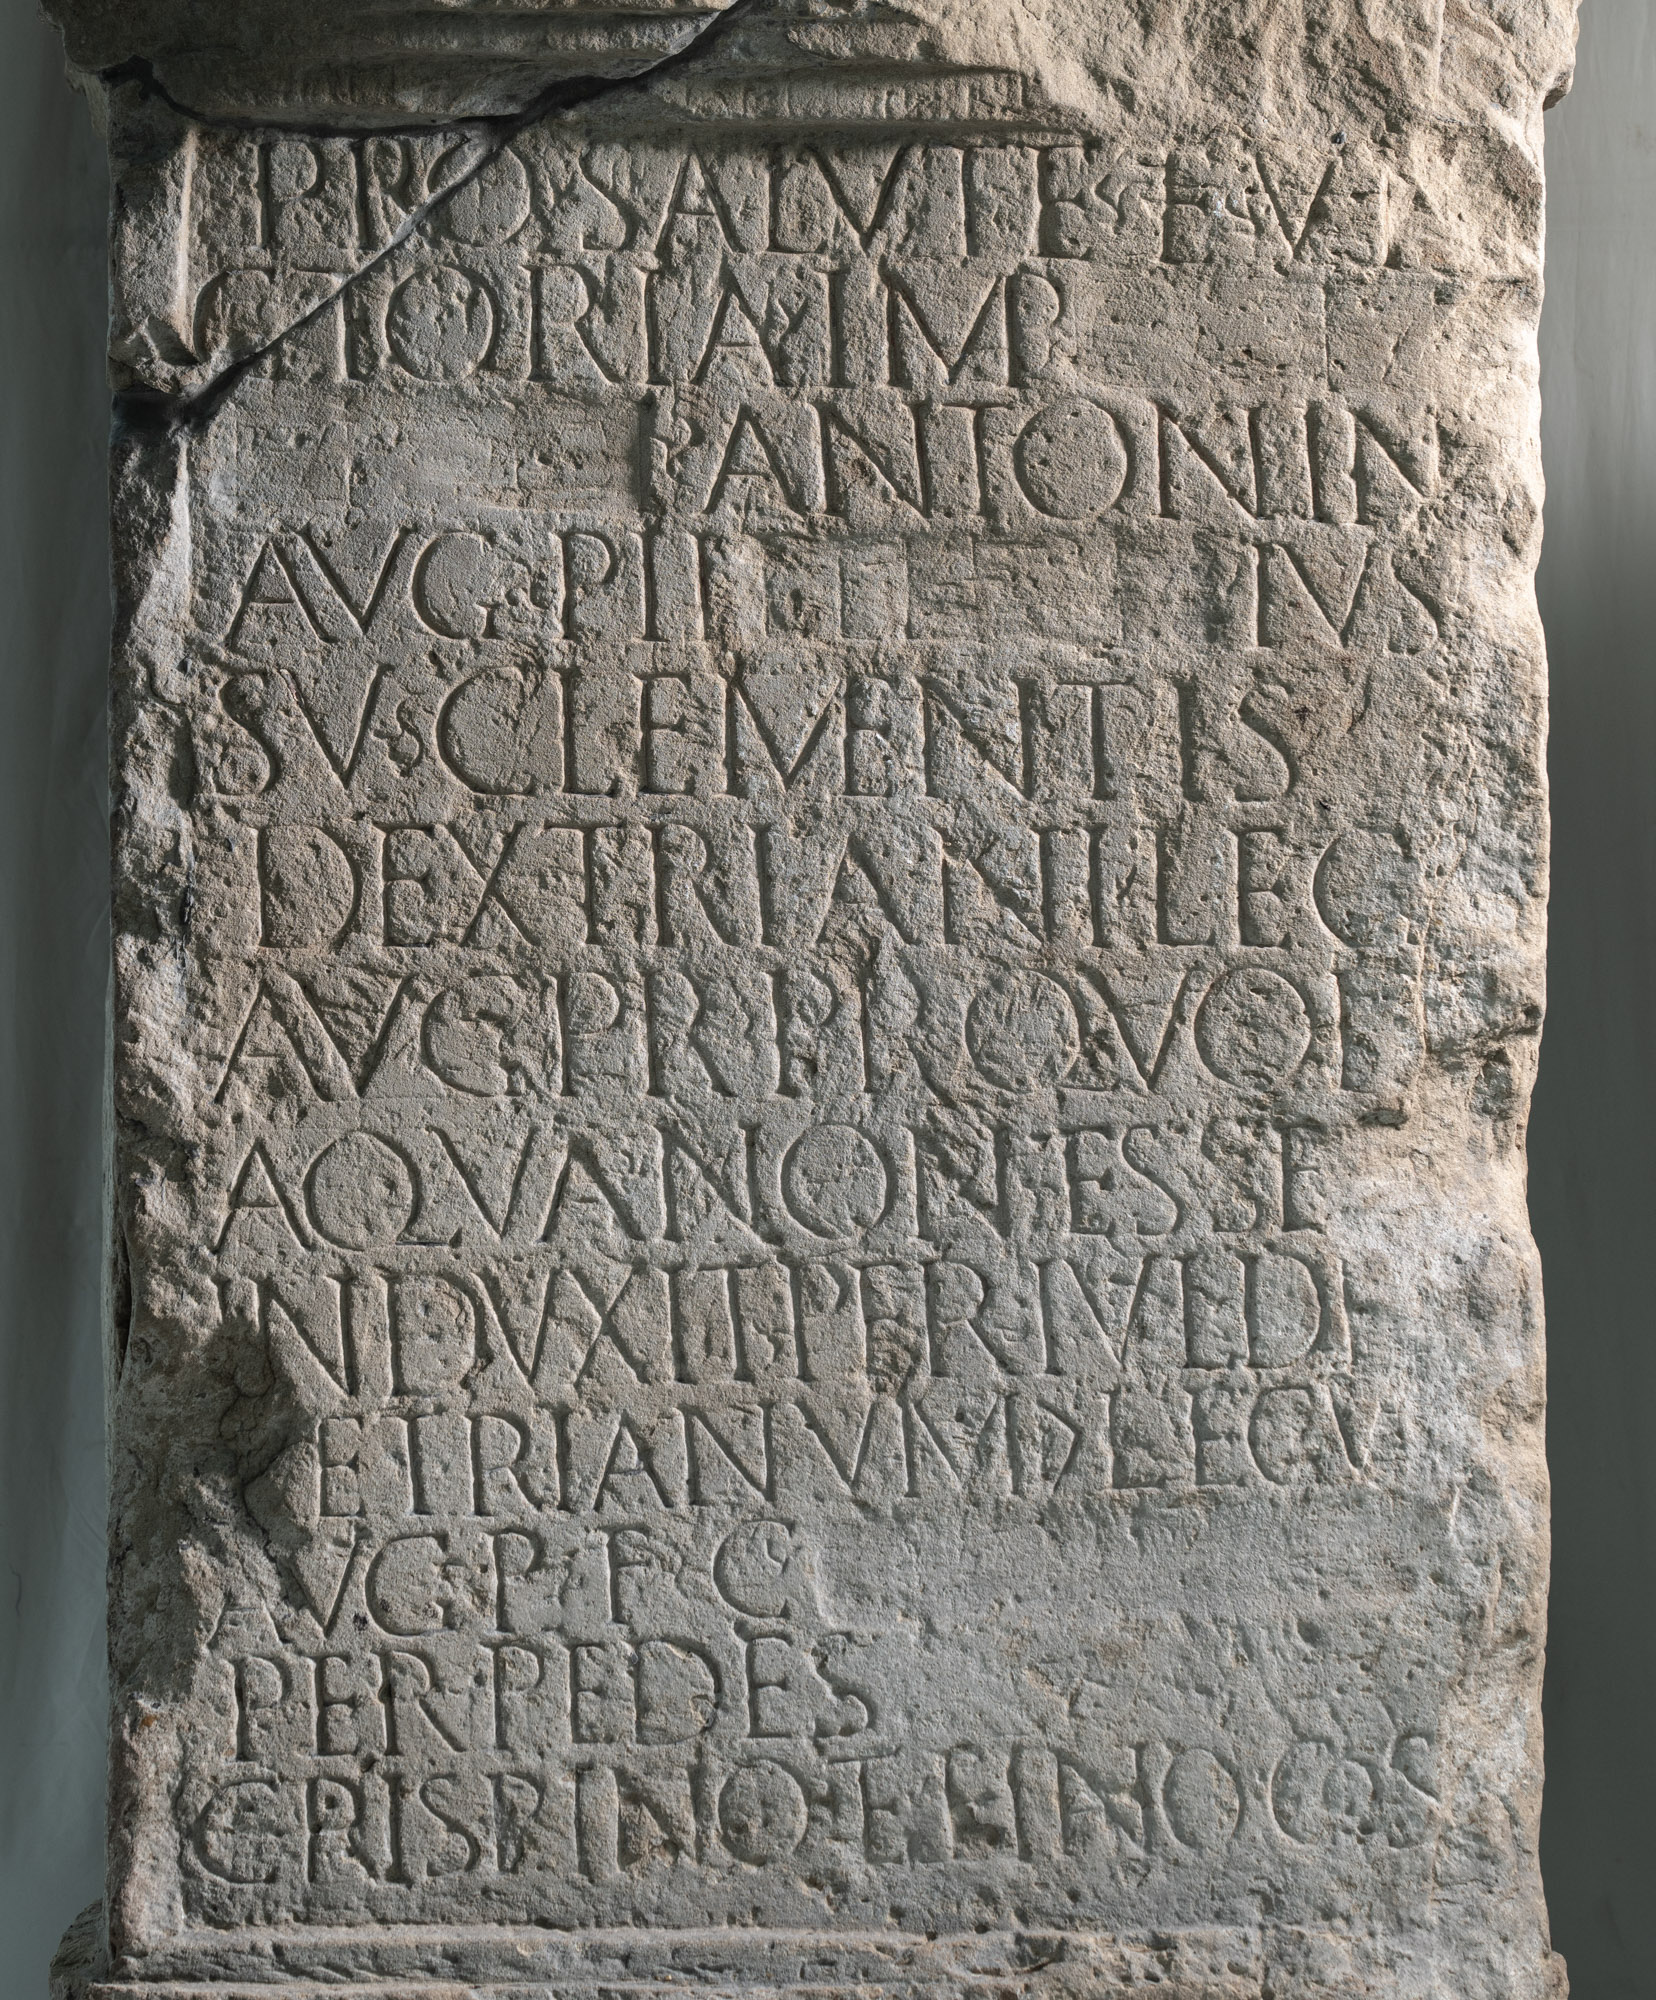 PRO SALVTE E VI
CTORIA IMP
P ANTONIN
AVG PII IVS
SV CLEMENTIS
DEXTRIANI LEG
AVG PR PR QVOD
AQVA NON ESSET
INDVXIT PER IVL DE
ETRIANVM > LEG
AVG P F
PER PEDES
CRISPINO ET COS